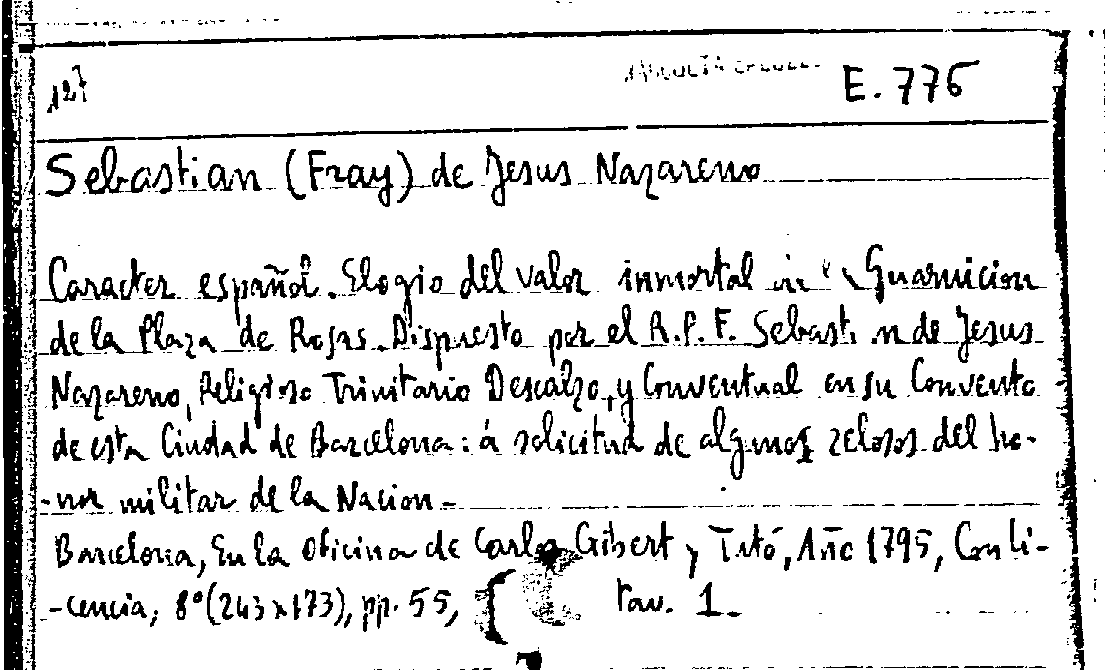 127
E. 776
Sebastian (Fray) de Jesus Nazareno
Caracter español. Elogio del valor inmortal Guarnicion
de la Plaza de Rosas. Dispuesto por el R.P.F. Sebasti n de Jesus
Nazareno, Religioso Trinitario Descalzo, y Conventual en su Convento
de esta Ciudad de Barcelona: á solicitud de algunos zelosos del ho-
-nor militar de la Nacion-
Barcelona, En la Oficina de Carlos Gibert y Tutó, Año 1795, Con li-
-cencia, 8º (243x173), pp. 55, tav. 1-